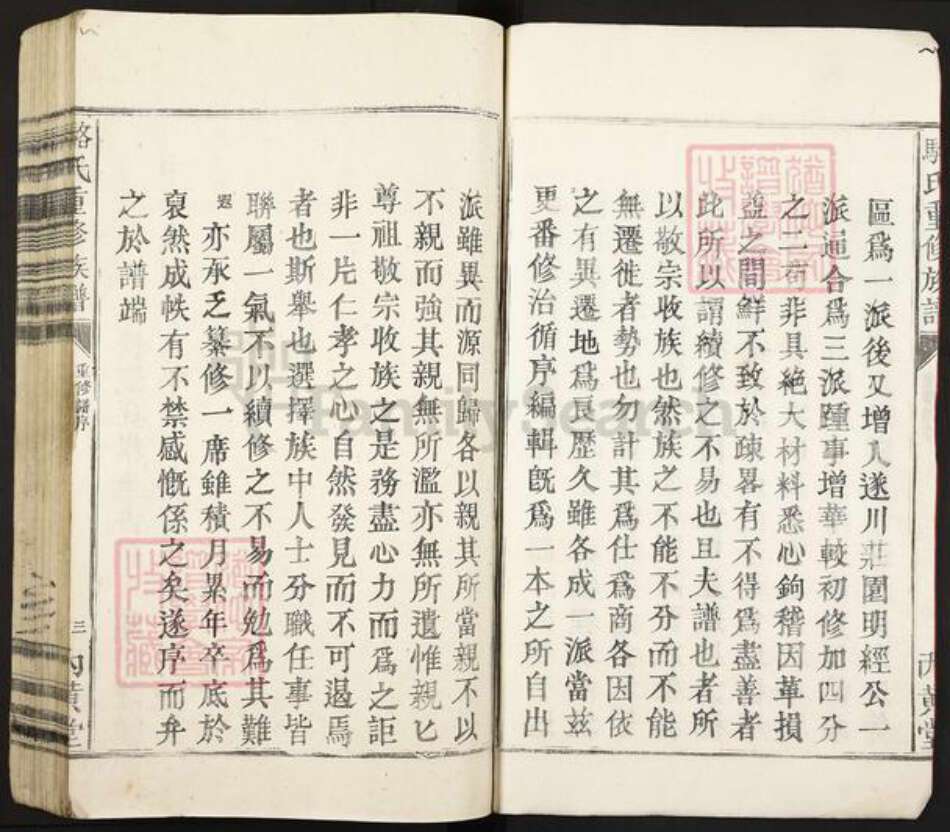 駱氏重修族譜
區爲一派後又增入遂川莊園明經公一
派通合爲三派踵事增華較初修加四分
之二苟非具絶大材料悉心鉤稽因革損
益之間鮮不致於疎畧有不得爲盡善者
此所以謂續修之不易也且夫譜也者所
以敬宗收族也然族之不能不分而不能
無遷徙者勢也勿計其爲仕爲商各因依
之有異遷地爲良歷久雖各成一派當茲
更番修治循序編輯旣爲一本之所自出
派雖異而源同歸各以親其所當親不以
不親而強其親無所濫亦無所遺惟親匕
尊祖敬宗收族之是務盡心力而爲之詎
非一片仁孝之心自然發見而不可遏焉
者也斯舉也選擇族中人士分職任事皆
聯屬一氣不以續修之不易而勉爲其難
亦忝乏纂修一席雖積月累年卒底於
裒然成帙有不禁感慨係之矣遂序而弁
之於譜端
駱氏重修族譜
重修譜序
三
內黃堂
FamilySearch